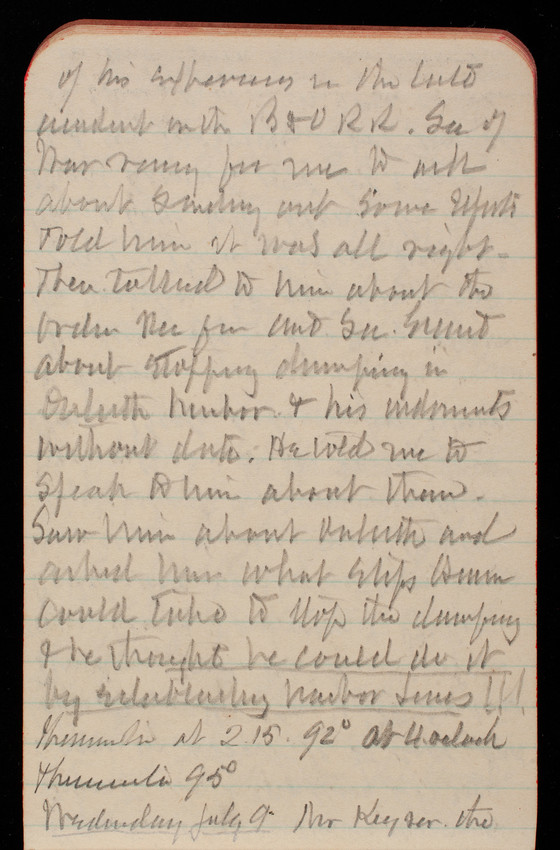 of his experiences in the late
accident on the B & O R R. Sec of
War rang for me to ask
about sending out some Efects
Told him it was all right -
Then talked to him about the
order rec from Act Sec. Grant
about stopping dumping in
Duluth harbor. & his indorsments
without date. He told me to
speak to him about them.
Saw him about Duluth and
asked him what steps
could take to stop the dumping
& he thought he could do it
by establishing harbor lines !!!
Thermometer at 2.15. 92° at 4 oclock
thermometer 95°
Wednesday July 9. Mr Keyser. the